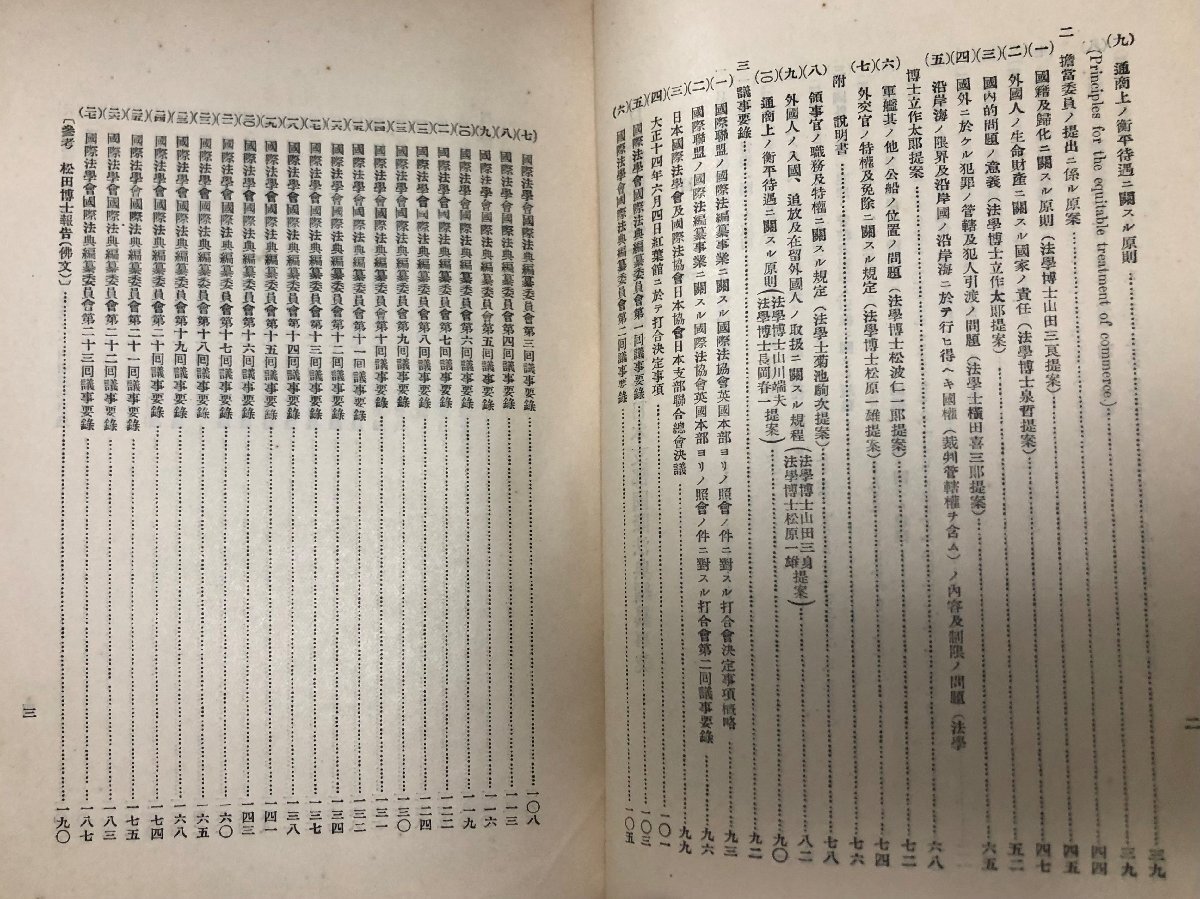 (九) 通商上ノ衡平待遇ニ關スル原則………三九
(Principles for the equitable treatment of commerce.)………三九
二 擔當委員ノ提出ニ係ル原案………四四
(一) 國籍及歸化ニ關スル原則(法學博士山田三良提案)………四五
(二) 外國人ノ生命財產ニ關スル國家ノ責任(法學博士泉哲提案)………四七
(三) 國內的問題ノ意義(法學博士立作太郎提案)………五二
(四) 國外ニ於ケル犯罪ノ管轄及犯人引渡ノ問題(法學士橫田喜三郎提案)………六五
(五) 沿岸海ノ限界及沿岸國ノ沿岸海ニ於テ行ヒ得ヘキ國權(裁判管轄權ヲ含ム)ノ內容及制限ノ問題(法學
博士立作太郎提案………六八
(六) 軍艦其ノ他ノ公船ノ位置ノ問題(法學博士松波仁一郎提案)………七二
(七) 外交官ノ特權及免除ニ關スル規定(法學博士松原一雄提案)………七四
附 說明書………七六
(八) 領事官ノ職務及特權ニ關スル規定(法學士菊池駒次提案)………七八
(九) 外國人ノ入國、追放及在留外國人ノ取扱ニ關スル規程(法學博士山田三良 法學博士松原一雄 提案)………八二
(一〇) 通商上ノ衡平待遇ニ關スル原則(法學博士山川端夫 法學博士長岡春一 提案)………九〇
三 議事要錄………九二
(一) 國際聯盟ノ國際法編纂事業ニ關スル國際法協會英國本部ヨリノ照會ノ件ニ對スル打合會決定事項槪略………九三
(二) 國際聯盟ノ國際法編纂事業ニ關スル國際法協會英國本部ヨリノ照會ノ件ニ對スル打合會第二回議事要錄………九六
(三) 日本國際法學會及國際法協會日本支部聯合總會決議………九九
(四) 大正十四年六月四日紅葉館ニ於テ打合決定事項………一〇一
(五) 國際法學會國際法典編纂委員會第一回議事要錄………一〇三
(六) 國際法學會國際法典編纂委員會第二回議事要錄………一〇五
二
(七) 國際法學會國際法典編纂委員會第三回議事要錄………一〇八
(八) 國際法學會國際法典編纂委員會第四回議事要錄………一一三
(九) 國際法學會國際法典編纂委員會第五回議事要錄………一一六
(一〇) 國際法學會國際法典編纂委員會第六回議事要錄………一一九
(一一) 國際法學會國際法典編纂委員會第七回議事要錄………一二二
(一二) 國際法學會國際法典編纂委員會第八回議事要錄………一二四
(一三) 國際法學會國際法典編纂委員會第九回議事要錄………一三〇
(一四) 國際法學會國際法典編纂委員會第十回議事要錄………一三一
(一五) 國際法學會國際法典編纂委員會第十一回議事要錄………一三二
(一六) 國際法學會國際法典編纂委員會第十二回議事要錄………一三四
(一七) 國際法學會國際法典編纂委員會第十三回議事要錄………一三七
(一八) 國際法學會國際法典編纂委員會第十四回議事要錄………一三八
(一九) 國際法學會國際法典編纂委員會第十五回議事要錄………一四一
(二〇) 國際法學會國際法典編纂委員會第十六回議事要錄………一四三
(二一) 國際法學會國際法典編纂委員會第十七回議事要錄………一六〇
(二二) 國際法學會國際法典編纂委員會第十八回議事要錄………一六五
(二三) 國際法學會國際法典編纂委員會第十九回議事要錄………一六八
(二四) 國際法學會國際法典編纂委員會第二十回議事要錄………一七四
(二五) 國際法學會國際法典編纂委員會第二十一回議事要錄………一七五
(二六) 國際法學會國際法典編纂委員會第二十二回議事要錄………一八三
(二七) 國際法學會國際法典編纂委員會第二十三回議事要錄………一八七
〔參考 松田博士報告(佛文)〕………一九〇
三